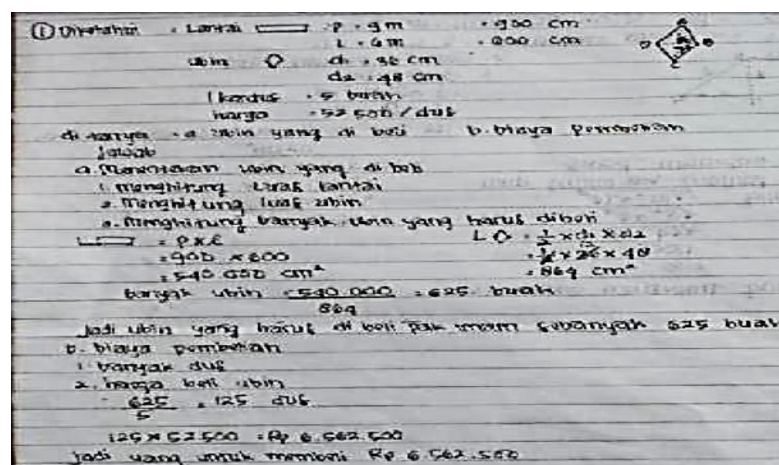 ① Diketahui : Lantai p = 9 m = 900 cm
L = 6 m = 600 cm
ubin ◇ d1 = 36 cm
d2 = 48 cm
1 kardus = 5 buah
harga = 52 500 / dus
di tanya = a ubin yang di beli b. biaya pembelian
jawab
a. Menentukan ubin yang di beli
1. menghitung Luas lantai
2. menghitung luas ubin
3. menghitung banyak ubin yang harus dibeli
L = p x l L ◇ = 1/2 x d1 x d2
= 900 x 600 = 1/2 x 36 x 48
= 540 000 cm² = 864 cm²
banyak ubin = 540 000 = 625 buah
864
Jadi ubin yang harus di beli pak imam sebanyak 625 buah
b. biaya pembelian
1. banyak dus
2. harga beli ubin
625 = 125 dus
5
125 x 52 500 = Rp 6.562.500
jadi uang untuk membeli Rp 6.562.500